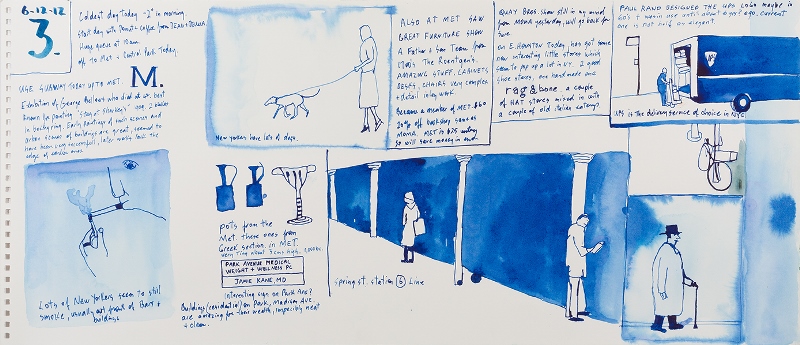 6-12-12
3.
Coldest day today -2° in morning
start day with Donut + coffee from DEAN + DELUCA.
Huge queue at 10am.
off to Met + Central Park today.
HUGE SUBWAY today up to MET.
M.
Exhibition of George Bellows who did at. best
known for painting "stag at Sharkey's" use 2 boxers
in background. Early Paintings of such scenes and
urban scenes of buildings are great, seemed to
have been very successful, later works lost the
edge of earlier ones.
Lots of New Yorkers seem to still
smoke, usually out front of Bars +
buildings
New yorkers have lots of dogs.
pots from the
Met these ones from
Greek section. in MET.
very tiny about 3cms high.
PARK AVENUE MEDICAL
WEIGHT + WELLNESS PC
JAMIE KANE, MD
Interesting sign on Park Ave?
Buildings (residential) on Park, Madison Ave.
are amazing for their wealth, impeccibly neat
+ clean.
ALSO AT MET SAW
GREAT FURNITURE SHOW
A Father + Son Team from
1700s The Roentgen's.
AMAZING STUFF. CABINETS
DESKS, CHAIRS very complex
+ detail inlay work
became a member of MET $60
20% off bookshop same as
MOMA. MET is $25 entry
so will save money in end.
QUAY BROS. show still in my mind
from MOMA yesterday, will go back for
sure
on E. HOUSTON Today, has got some
new interesting little stores which
seem to pop up a lot in NY. 2 good
shoe stores, one hand made one
rag & bone. a couple
of HAT stores mixed in with
a couple of old Italian eatery?
PAUL RAND DESIGNED THE UPS LOGO maybe in
60's + was in use until about a yr? ago. current
one is not half as elegant.
UPS is the delivery service of choice in NYC
spring st. station 6 Line